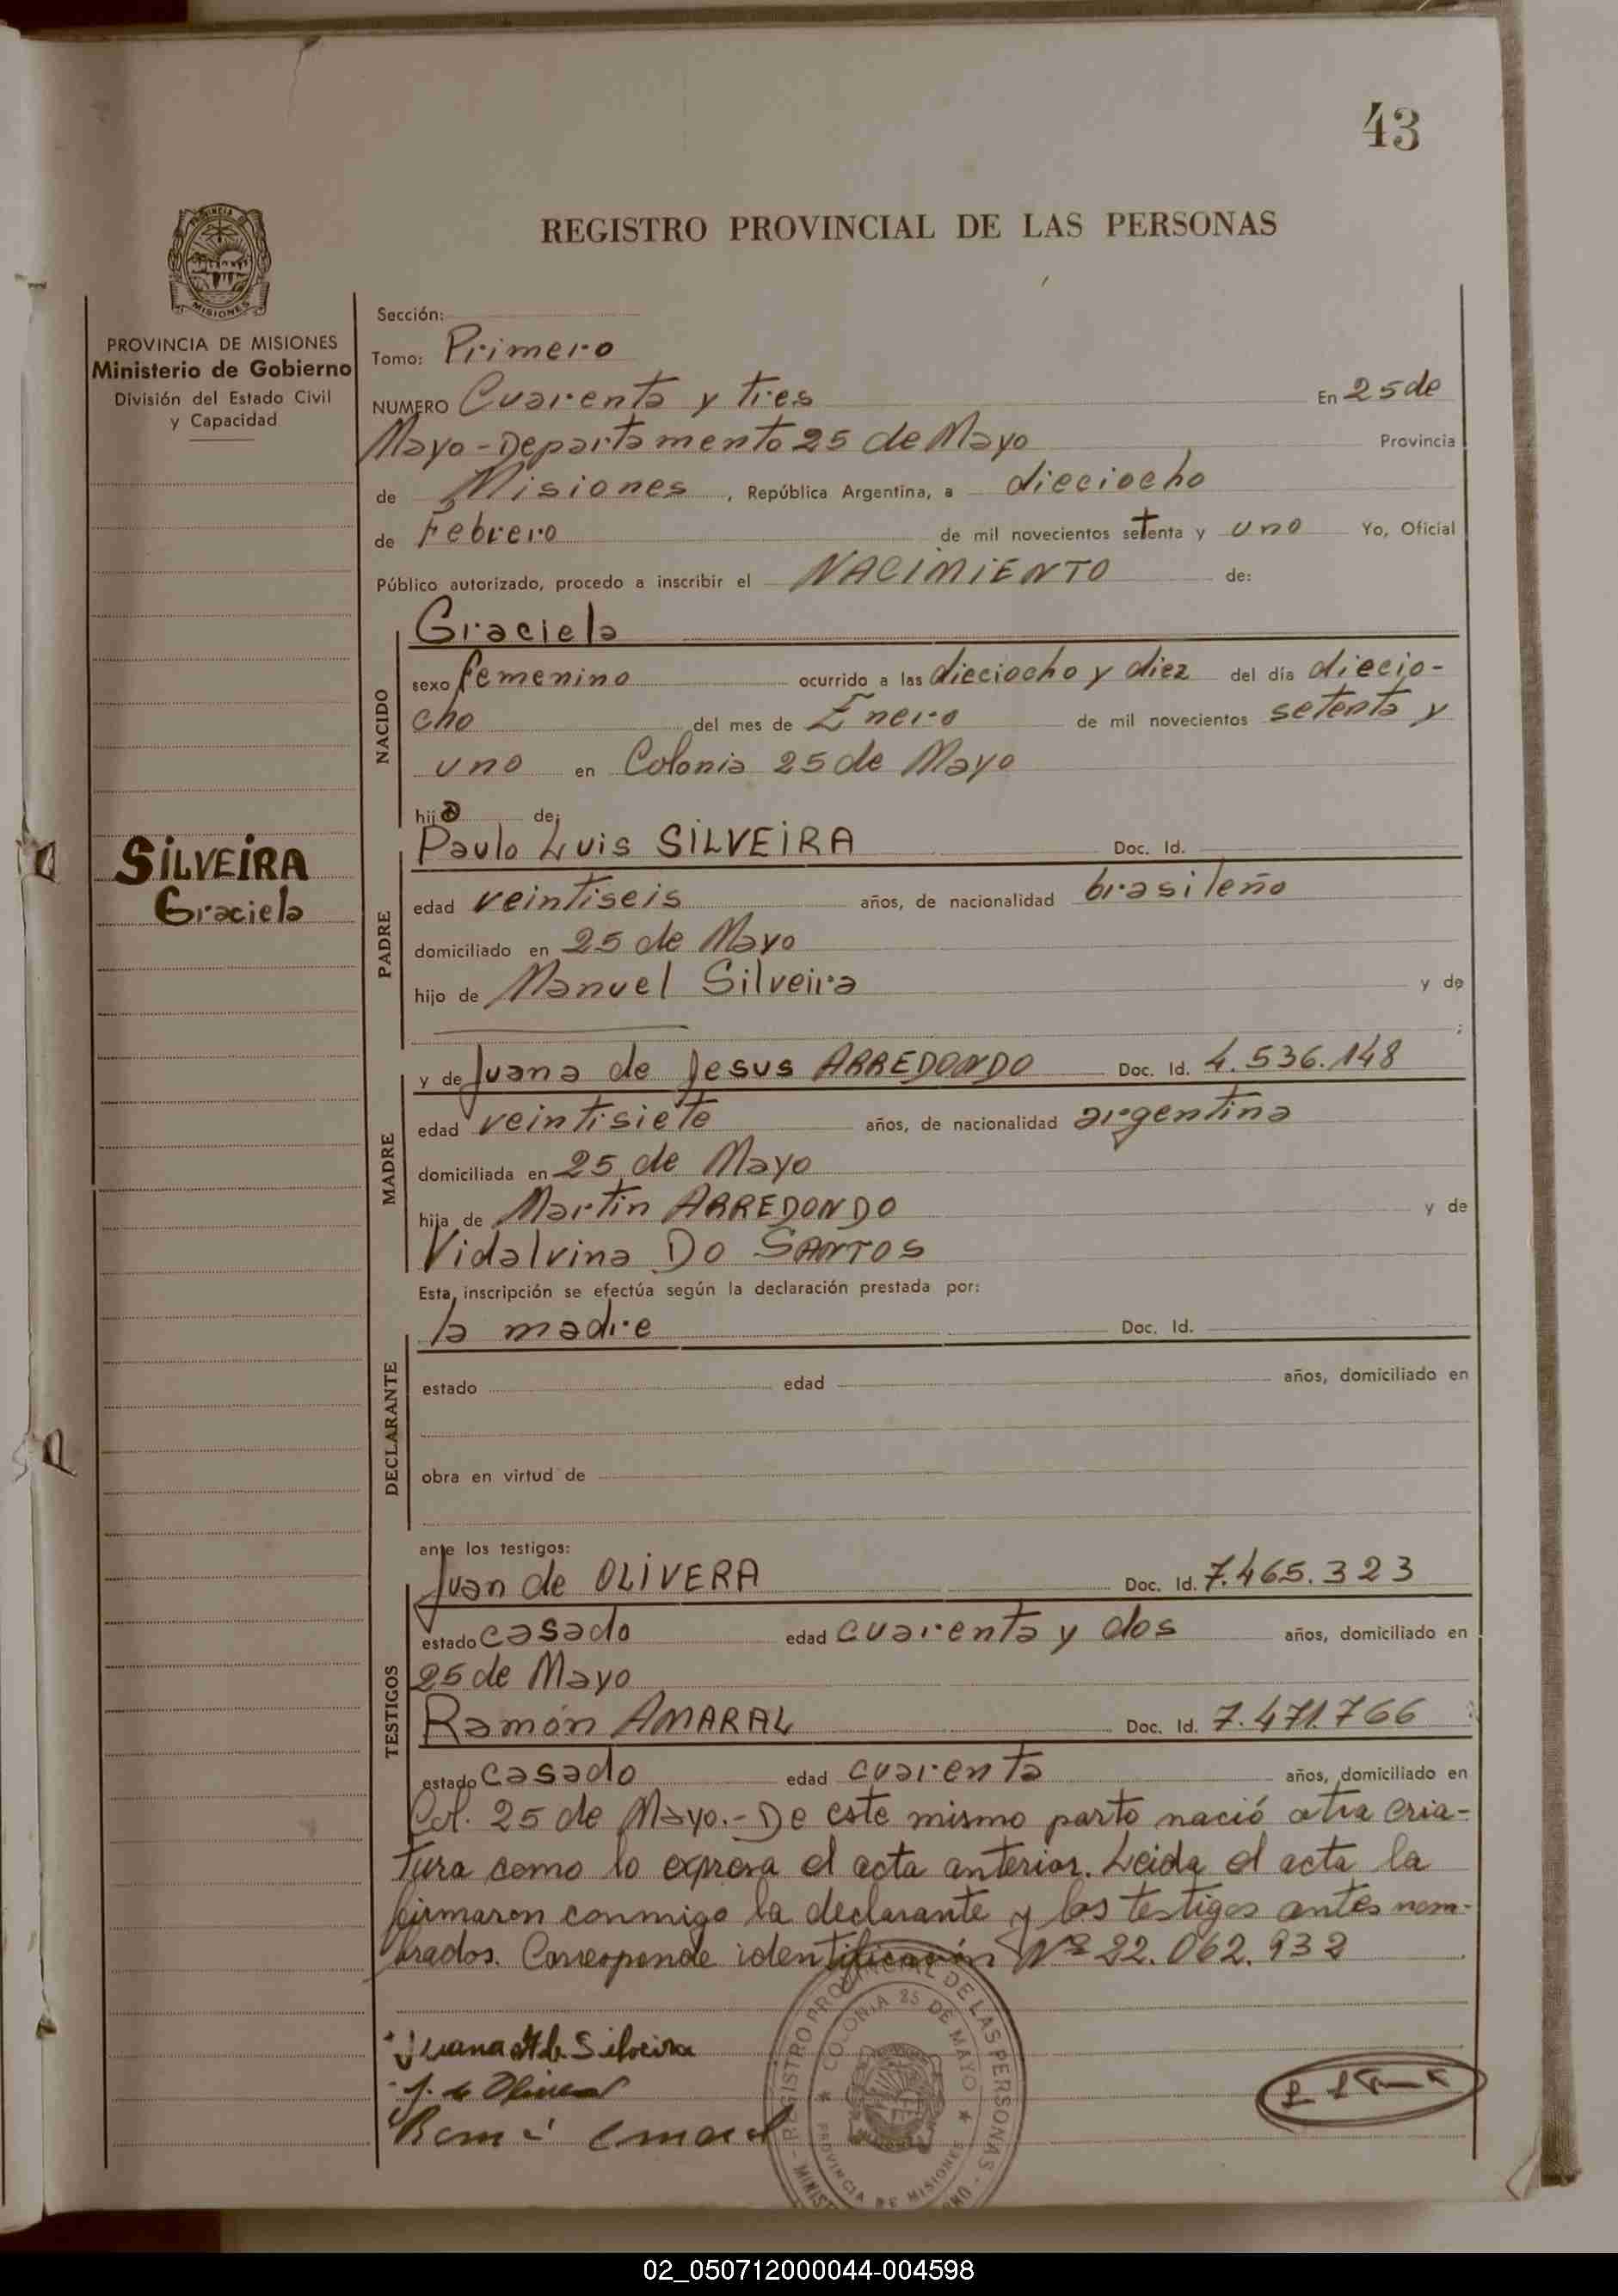 43
PROVINCIA DE
MISIONES
REGISTRO PROVINCIAL DE LAS PERSONAS
PROVINCIA DE MISIONES
Ministerio de Gobierno
División del Estado Civil
y Capacidad
SILVEIRA
Graciela
Sección:
Tomo: Primero
NUMERO Cuarenta y tres En 25 de
Mayo - Departamento 25 de Mayo Provincia
de Misiones, República Argentina, a dieciocho
de Febrero de mil novecientos setenta y uno Yo, Oficial
Público autorizado, procedo a inscribir el NACIMIENTO de:
NACIDO
Graciela
sexo femenino ocurrido a las dieciocho y diez del día diecio-
cho del mes de Enero de mil novecientos setenta y
uno en Colonia 25 de Mayo
hija de:
PADRE
Paulo Luis SILVEIRA Doc. Id.
edad veintiseis años, de nacionalidad brasileño
domiciliado en 25 de Mayo
hijo de Manuel Silveira y de
;
MADRE
y de Juana de Jesus ARREDONDO Doc. Id. 4.536.148
edad veintisiete años, de nacionalidad argentina
domiciliada en 25 de Mayo
hija de Martin ARREDONDO y de
Vidalvina DO SANTOS
Esta inscripción se efectúa según la declaración prestada por:
DECLARANTE
la madre Doc. Id.
estado edad años, domiciliado en
obra en virtud de
ante los testigos:
TESTIGOS
Juan de OLIVERA Doc. Id. 7.465.323
estado casado edad cuarenta y dos años, domiciliado en
25 de Mayo
Ramón AMARAL Doc. Id. 7.471.766
estado casado edad cuarenta años, domiciliado en
Col. 25 de Mayo.- De este mismo parto nació otra cria-
tura como lo expresa el acta anterior. Leida el acta la
firmaron conmigo la declarante y los testigos antes nom-
brados. Corresponde identificación Nº 22.062.932
Juana Silveira
J. de Olivera
REGISTRO PROVINCIAL DE LAS PERSONAS
COLONIA 25 DE MAYO
PROVINCIA DE MISIONES
02_050712000044-004598